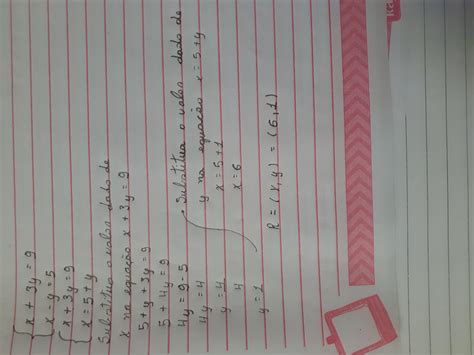 x + 3y = 9
x - y = 5
x + 3y = 9
x = 5 + y
Substitua o valor dado de
x na equação x + 3y = 9
5 + y + 3y = 9
5 + 4y = 9
4y = 9 - 5
4y = 4
y = 4
4
y = 1
Substitua o valor dado de
y na equação x = 5 + y
x = 5 + 1
x = 6
R = (x, y) = (6, 1)